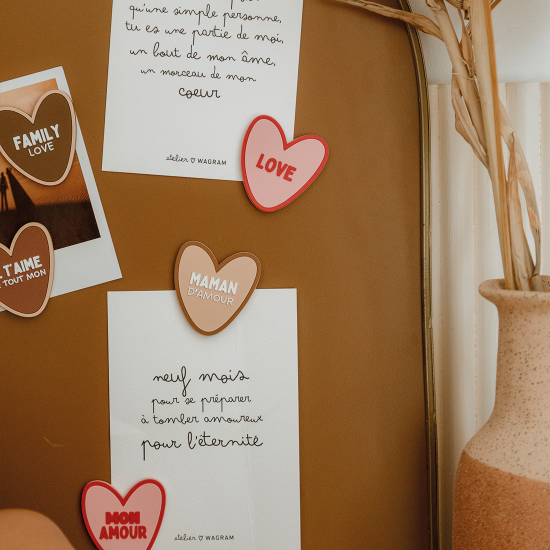 qu'une simple personne,
tu es une partie de moi,
un bout de mon âme,
un morceau de mon
coeur
atelier WAGRAM
FAMILY
LOVE
LOVE
T'AIME
TOUT MON
MAMAN
D'AMOUR
neuf mois
pour se préparer
à tomber amoureux
pour l'éternité
MON
AMOUR
atelier WAGRAM